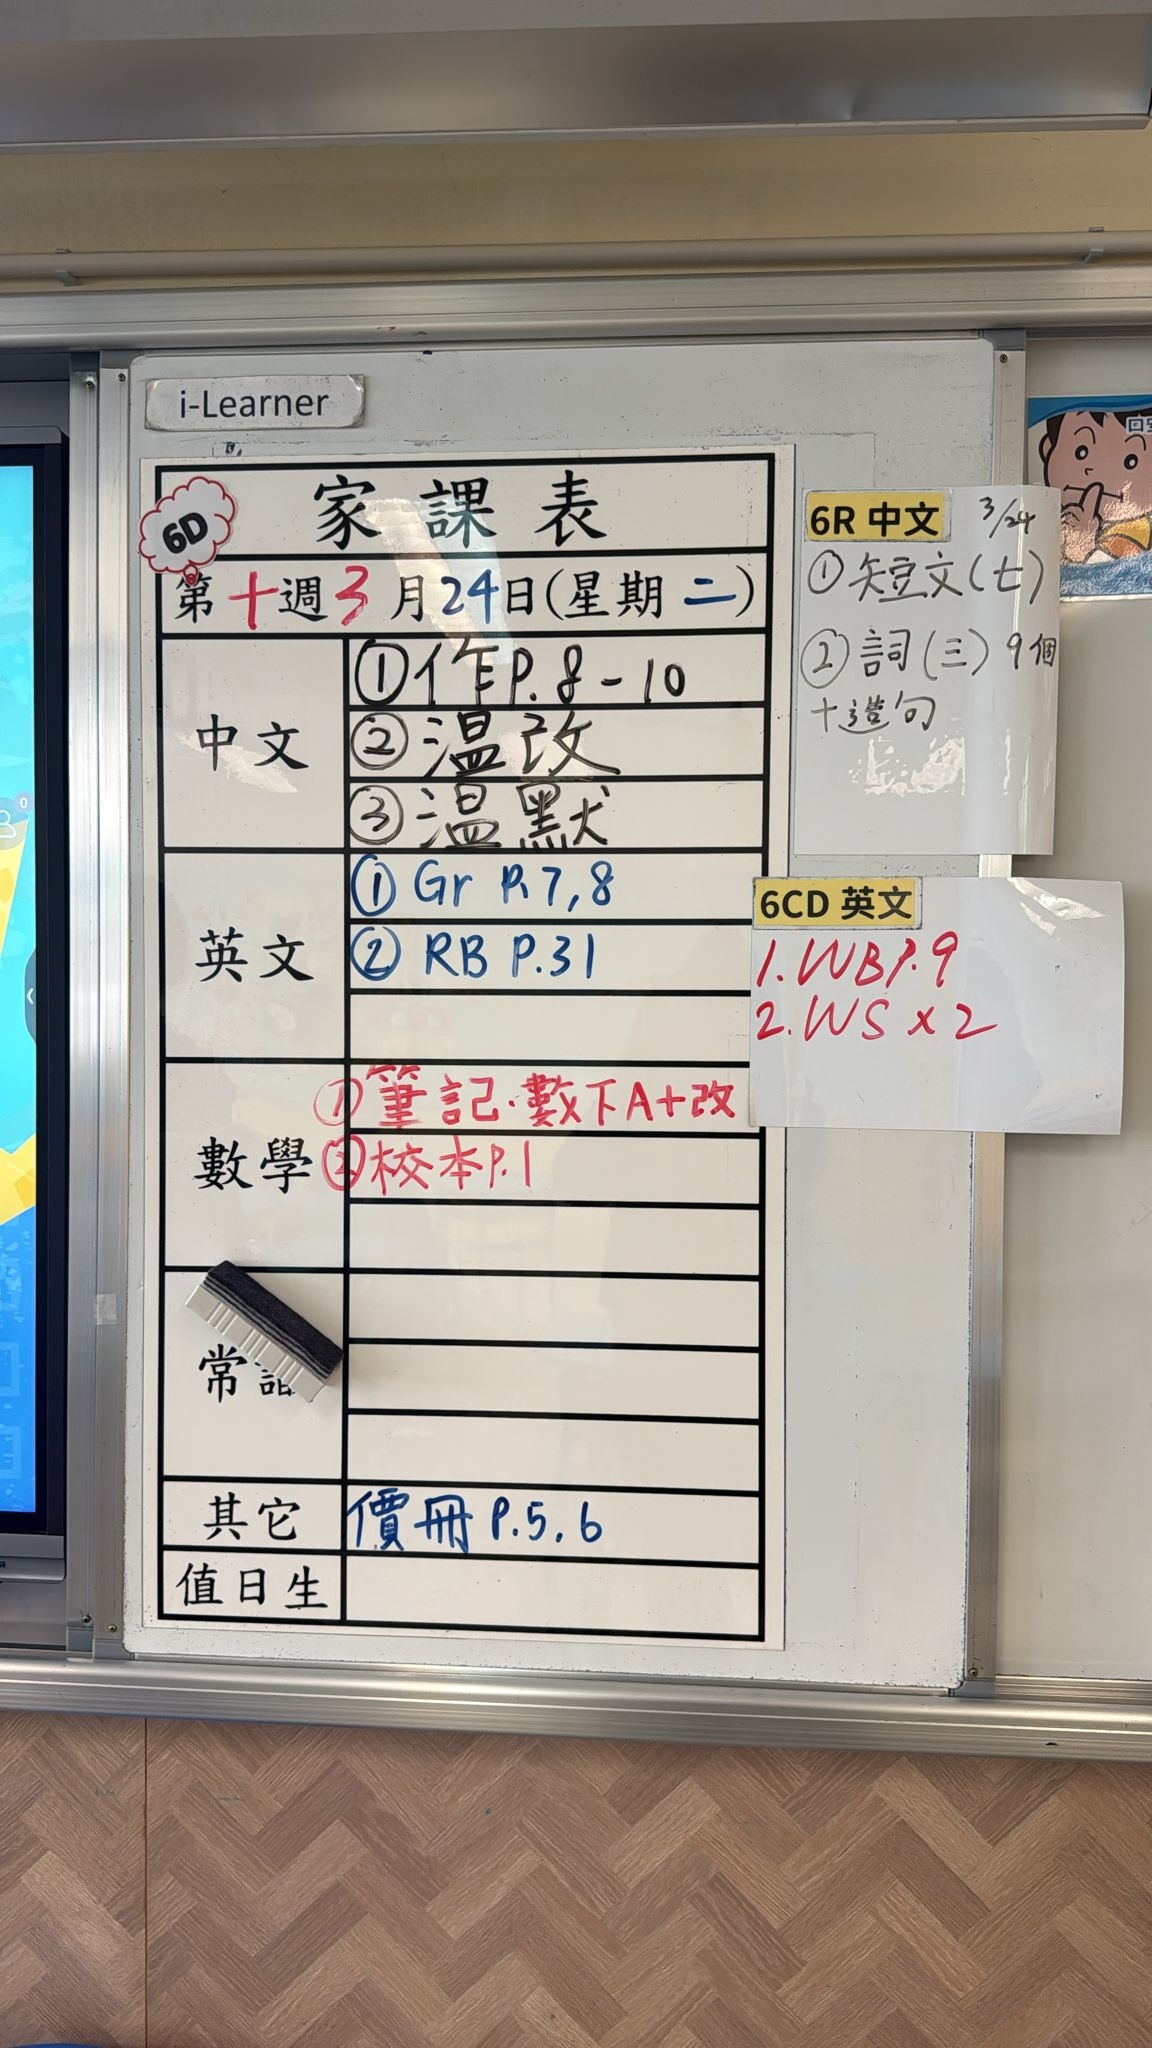 i-Learner
6D
家課表
第十週3月24日(星期二)
中文
①作P.8-10
②溫改
③溫默
英文
① Gr P.7,8
② RB P.31
數學
①筆記.數下A+改
②校本P.1
常
其它
價冊 P.5,6
值日生
6R 中文 3/24
①短文(七)
②詞(三)9個
+造句
6CD 英文
1.WBP.9
2.WS x2
0